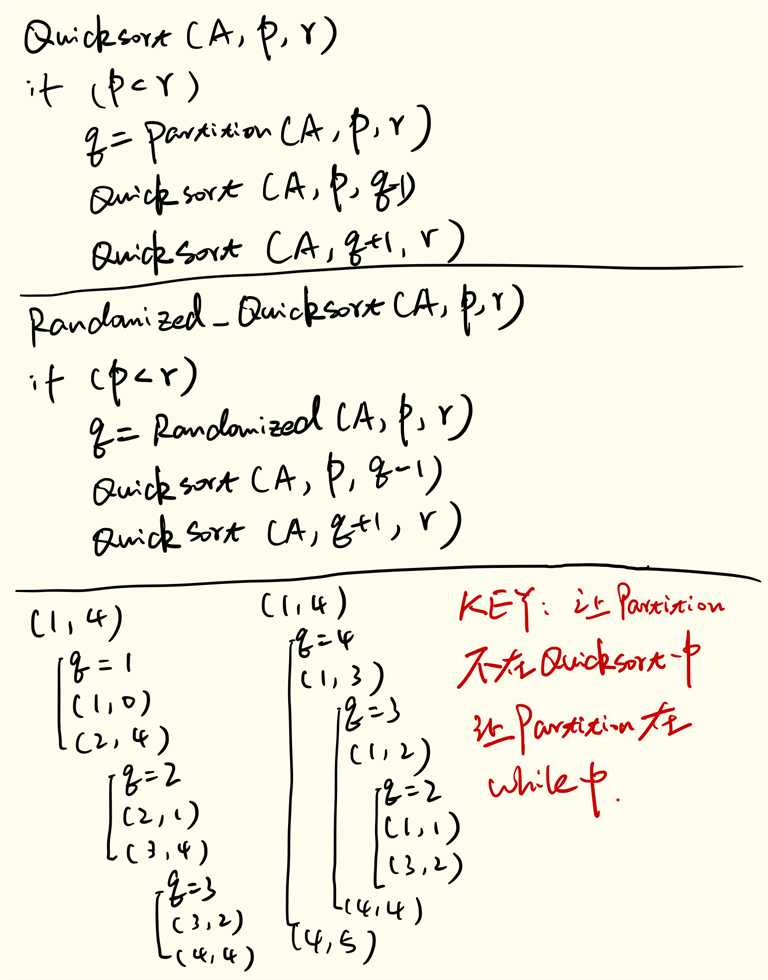 Quicksort (A, p, r)
if (p<r)
q = Partition (A, p, r)
Quicksort (A, p, q-1)
Quicksort (A, q+1, r)
Randomized_Quicksort (A, p, r)
if (p<r)
q = Randomized (A, p, r)
Quicksort (A, p, q-1)
Quicksort (A, q+1, r)
(1, 4)
q = 1
(1, 0)
(2, 4)
q=2
(2, 1)
(3, 4)
q=3
(3, 2)
(4, 4)
(1, 4)
q=4
(1, 3)
q=3
(1, 2)
q=2
(1, 1)
(3, 2)
(4, 4)
(4, 5)
KEY: 让Partition
不在Quicksort中
让Partition在
while中.